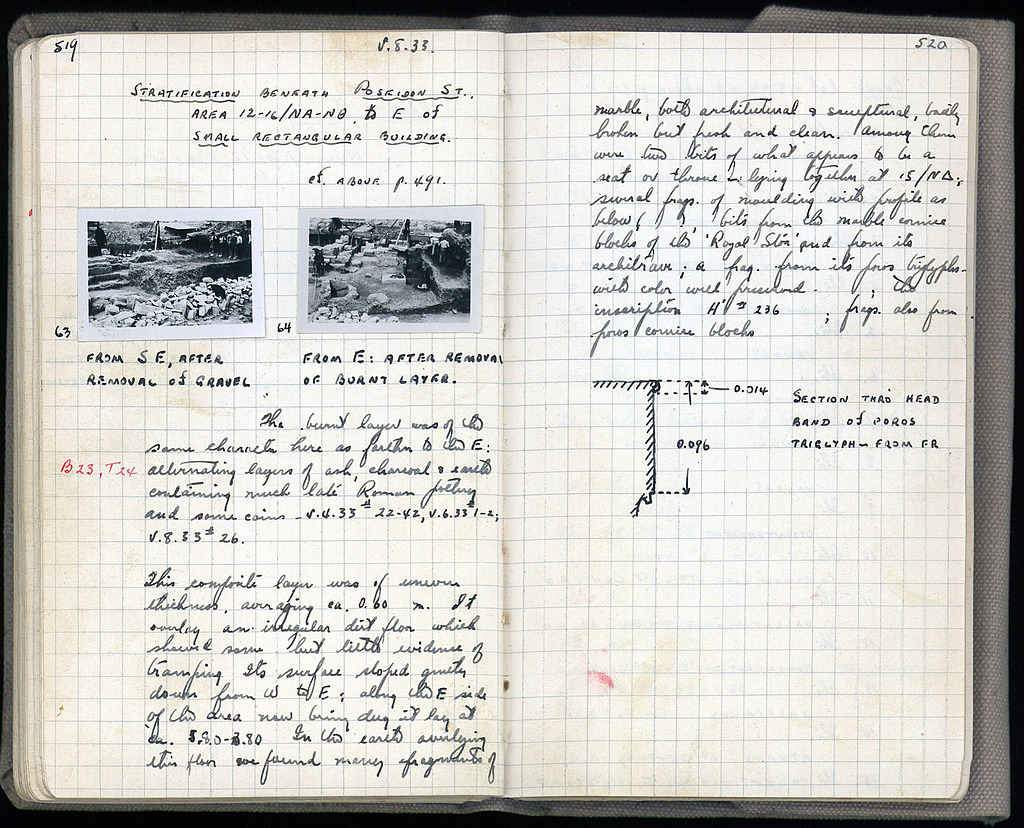 519
V.8.33.
STRATIFICATION BENEATH POSEIDON ST.,
AREA 12-16/NA-NΘ, to E of
SMALL RECTANGULAR BUILDING.
cf. ABOVE p. 491.
63
FROM SE, AFTER
REMOVAL of GRAVEL
64
FROM E: AFTER REMOVAL
OF BURNT LAYER.
The burnt layer was of the
same character here as farther to the E:
B23, T24
alternating layers of ash, charcoal & earth
containing much late Roman pottery
and some coins - V.4.33 # 22-42, V.6.33 # 1-2;
V.8.33 # 26.
This composite layer was of uneven
thickness, averaging ca. 0.60 m. It
overlay an irregular dirt floor which
showed some but little evidence of
tramping. Its surface sloped gently
down from W to E; along the E side
of the area now being dug it lay at
ca. In the earth overlying
this floor we found many fragments of
520
marble, both architectural & sculptural, badly
broken but fresh and clean. Among them
were two bits of what appears to be a
seat or throne - lying together at 15/NΔ;
several frags. of moulding with profile as
below; bits from the marble cornice
blocks of the 'Royal Stoa' and from its
architrave; a frag. from its poros triglyphs
with color well preserved. ; the
inscription # 236 ; frags. also from
poros cornice blocks
0.014
0.096
SECTION THRO HEAD
BAND of POROS
TRIGLYPH - FROM FR